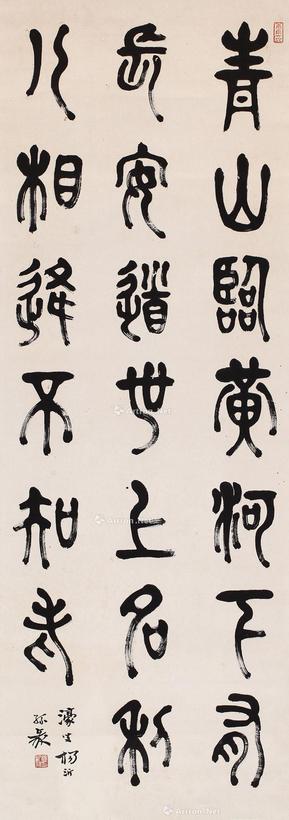 青山臨黃河下有
長安道世上名利
人相逢不知老
濠叟楊沂
孫篆